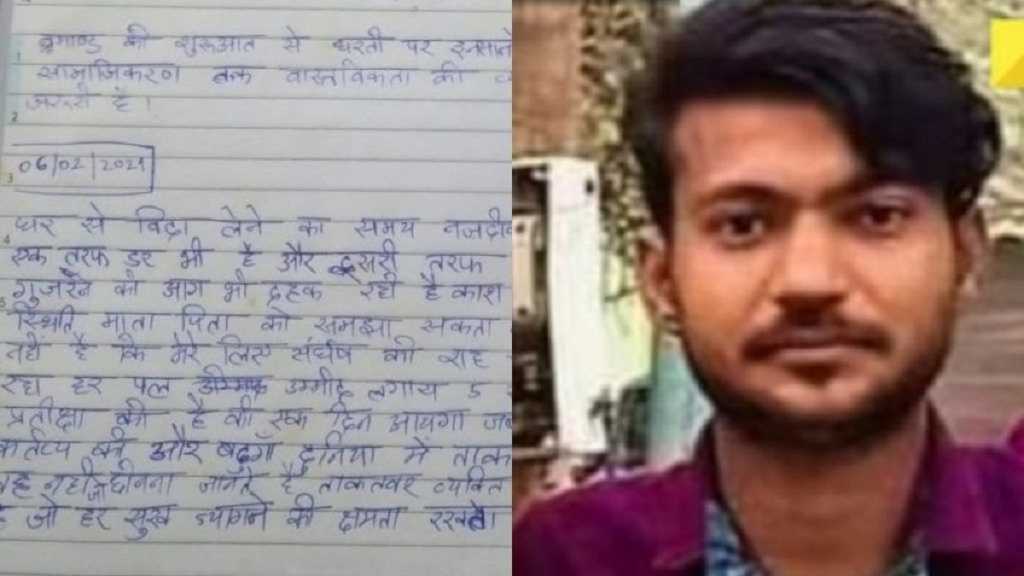 की शुरुआत से धरती पर
सामाजिकरण वास्तविकता की
जरूरी है।
06/02/2021
घर से विदा लेने का समय
एक तरफ डर भी है और दूसरी तरफ
गुजरने की आग भी दहक रही है काश
स्थिति माता पिता को समझा सकता
नहीं है कि मेरे लिए संर्घष की राह
रहा हर पल उम्मीद लगाय 5
प्रतीक्षा की है की एक दिन आयगा
की और बढ़ुगाँ दुनिया में
है ताकतवर व्यक्ति
जो हर सुख त्यागने की क्षमता रखता